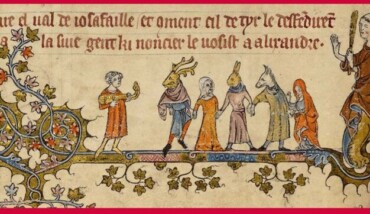 el val de iosafaille / et coment cil de tyr le desfeduret
la suie gent ki noncier le vosist a alixandre.